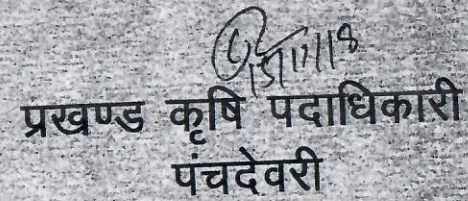 प्रखण्ड कृषि पदाधिकारी
पंचदेवरी